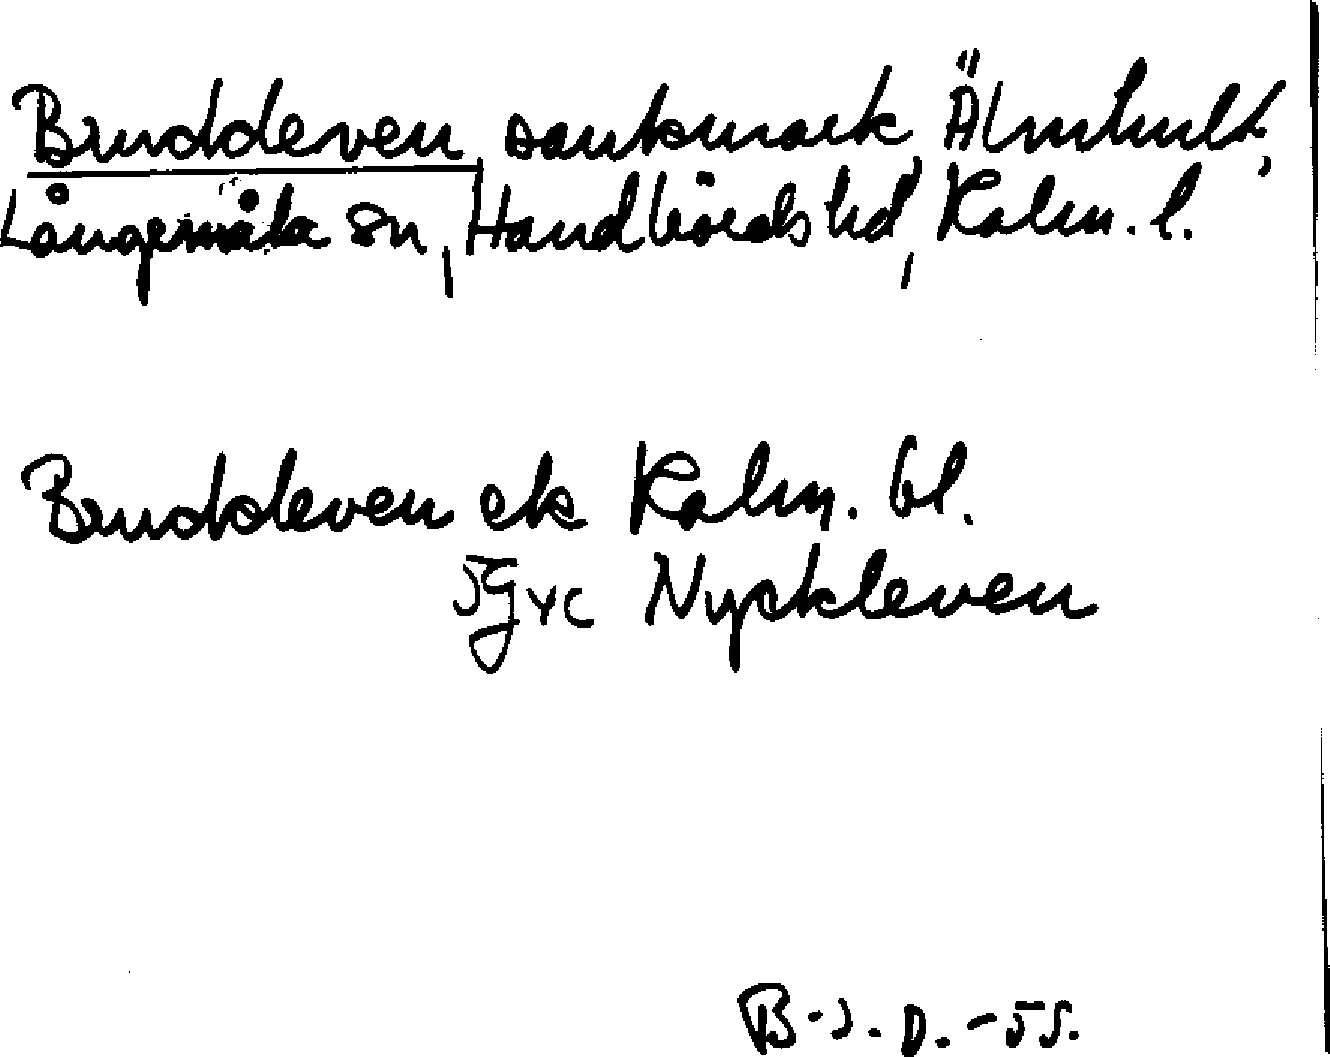 Bruddeven sankmark, Älmhult,
Långemåla sn, Handbörds hd, Kalm. l.
Bruddeven ek Kalm. bl.
5g yc Nyckleven
B-J. D. -55.